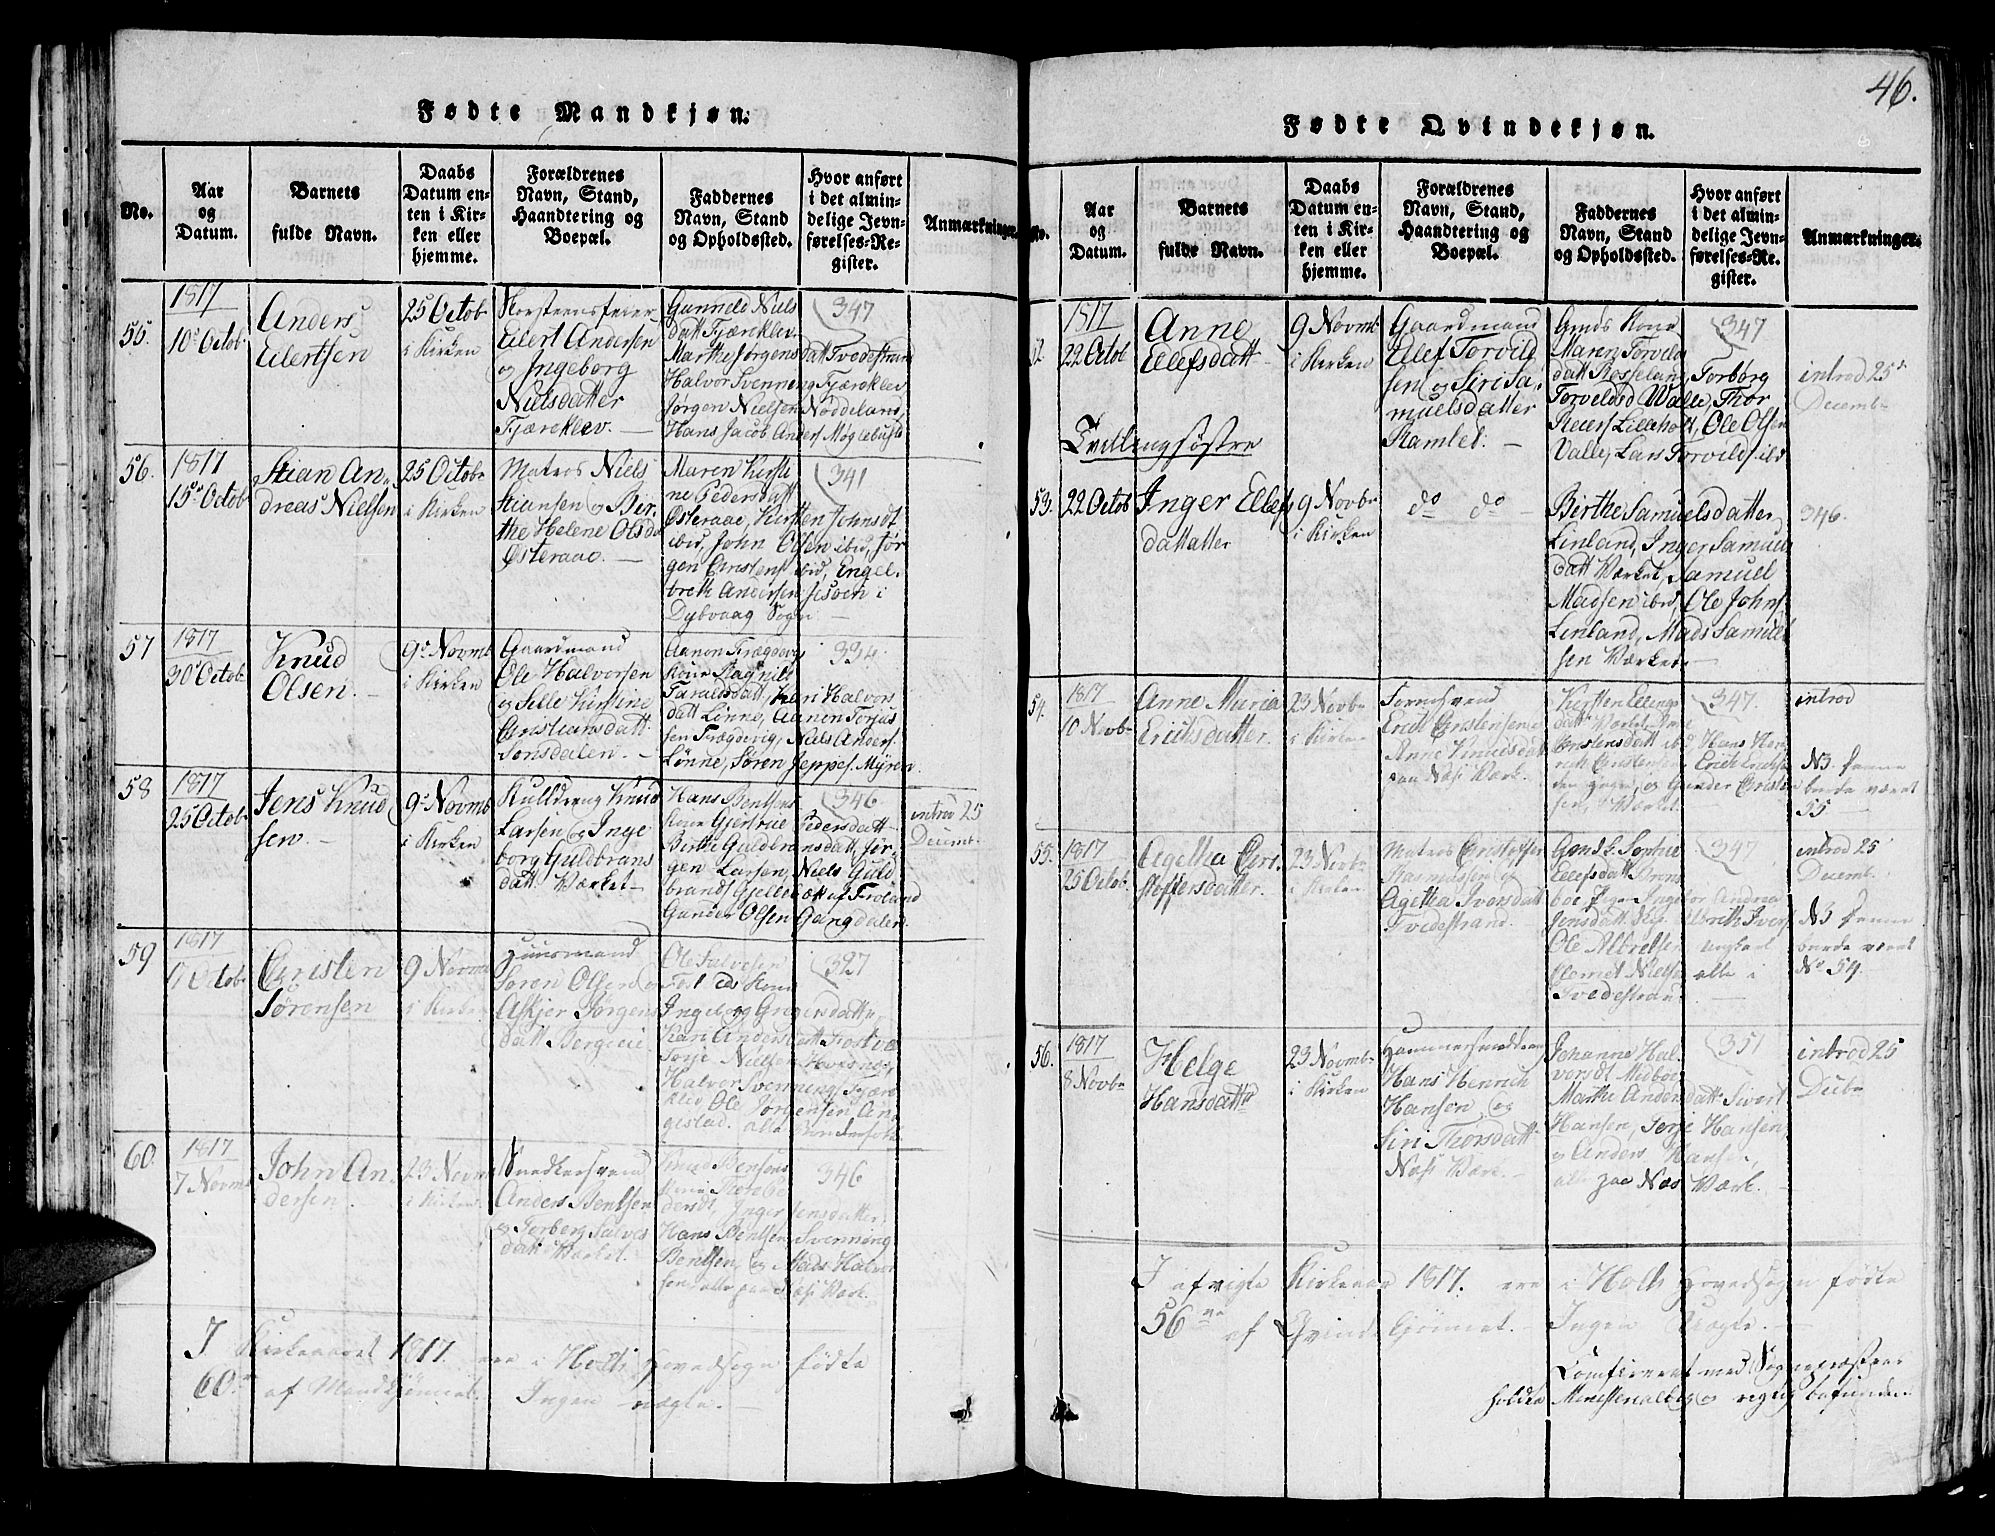 Fødte Mandkjøn.
No.
Aar
og
Datum.
Barnets
fulde Navn.
Daabs
Datum en-
ten i Kir-
ken eller
hjemme.
Forældrenes
Navn, Stand,
Haandtering og
Boepæl.
Faddernes
Navn, Stand
og Opholdssted.
Hvor anført
i det almin-
delige Jevn-
førelses-Re-
gister.
Anmærkninger.
55.
1817
10de Octob
Anders
Eilertsen
25 Octob
i Kirken
Korsteensfeier
Eilert Andersen
og Ingeborg
Nielsdatter
Fjæreklev.
Gunneld Niels
datt Fjæreklev
Marthe Jørgensdatt Tvedestrand
Halvor Svenning Fjæreklev
Jørgen Nielsen Nøddeland
Hans Jacob Anders Møglebustø
347
56.
1817
15de Octob
Stian An-
dreas Nielsen
25 Octobr
i Kirken
Matros Niels
Stiansen og Ber-
the Helene Olsd
Østeraae.
Maren Kirsti-
ne Pedersdatt
Østeraae, Kirsten Johnsdt
ibid, John Olsen ibid, Jør
gen Christens ibid, Engel-
breth Andersen i
Dybvaag Sogn
341
57
1817
30 Octob
Knud
Olsen.
9de Novmb
i Kirken
Gaardmand
Ole Halvorsen
og Sille Kirstine
Christiansdatt
Sonsdalen.
Aanon Frægdevigs
Kone Ragnild
Taraldsdatt, Kari Halvors
datt Lønne, Aanon Torjus
sen Frægdevig, Niels Anders
Lønne, Søren Jeppes. Myren
334
58
1817
25 Octob
Jens Knud
sen.
9de Novmb
i Kirken
Kulldreng Knud
Larsen og Inge
borg Guldbrans
datt Værket
Hans Bentsens
Kone Gjertrue Pedersdatt
Birthe Guldbransdatt, Jør-
gen Larsen, Niels Guld
brands Gjellebæk af Froland
Gunder Olsen Gangdalen.
346
introd 25
Decemb.
59
1817
Octob
Christen
Sørensen
9 Novmb
i Kirken
Huusmand
Søren Olsen og
Askjer Jørgens
datt Bergeie.
Ole Salvesen
Kone
Ingeborg Gregersdatter
Kari Andersdatt Fostvæ
Torje Nielsen
Halvor Svenning Fjære
klev Ole Jørgensen An
gestad. alle Bonderfolk
327
60.
1817
7 Novmb
John An
dersen
23 Novmb
i Kirken
Snedkersvend
Anders Bentsen
og Torberg Salves
datt Værket.
Knud Bensens
Kone Thore Pe
dersdt, Inger Jensdatter
Hans Bentsen Svenning
Bentsen, og Mads Halvor
sen, alle paa Næs Værk.
346
I Kirkeaaret 1817. ere i Holt Hovedsogn fødte
60 af Mandkjønnet. Ingen uægte.
46.
Fødte Qvindekjøn.
No.
Aar
og
Datum.
Barnets
fulde Navn.
Daabs
Datum en-
ten i Kir-
ken eller
hjemme.
Forældrenes
Navn, Stand,
Haandtering og
Boepæl.
Faddernes
Navn, Stand
og Opholdssted.
Hvor anført
i det almin-
delige Jevn-
førelses-Re-
gister.
Anmærkninger.
52.
1817
22 Octob
Anne
Ellefsdatt
9 Novmb
i Kirken
Gaardmand
Ellef Torvild
sen og Siri Sa-
muelsdatter
Ramlet.
Gmds Kone
Maren Torvilds
datt Rosseland, Torborg
Torvildsd Walle, Thor
Reiers Lilleholt, Ole Olsen
Valle, Lars Torvilds ibd
347
introd 25de
Decemb
Tvillingsøstre
53.
22 Octob
Inger Ellefs
dattatter
9 Novbr
i Kirken
do do
Birthe Samuelsdatter
Linland, Inger Samuels
datt Værket, Samuel
Madsen ibid, Ole Johns
Linland, Mads Samuel
sen Værket
346.
54.
1817
10 Novbr
Anne Maria
Erichsdatter.
23 Novbr
i Kirken
Erich Christensen og
Anne Knudsdatt
paa Næs Værk.
Kirsten Ellings
datt Værket, Anne
Christensdatt ibd Hans Hen
rich Christensen Erich
den yngre, og Gunder Christen
sen, Værket
347.
introd
NB. denne
burde været
55
55.
1817
25 Octob.
Agetha Chri-
stoffersdatter.
23 Novbr
i Kirken
Matros Christoffer
Rasmussen og
Agetha Iversdatt
Tvedestrand.
Gmds K. Sophie
Ellefsdatt
boe Piger Ingebor Andrea
Jensdatt Ulrich Ivers
Ole Albretsen ungkarl
Clemet Nielsen alle i
Tvedestrand
347
introd 25
Decemb.
NB denne
burde været
No 54.
56.
1817
8 Novbr
Helge
Hansdatter
23 Novmb
i Kirken
Hammersmeddreng
Hans Henrich
Hansen og
Siri Thorsdatt
Næs Værk.
Johanne Hal-
versdt Midboe
Marthe Andersdatt Swart
Hansen, Terje Hansen,
og Anders Hansen,
alle paa Næs Værk.
351
introd 25
Decbr
I afvigte Kirkeaar 1817. ere i Holt Hovedsogn fødte
56 af Qvindekjønnet. Ingen Uægte.
Confereret med Sognepræstens
holdte Ministerialbog og rigtig befunden.